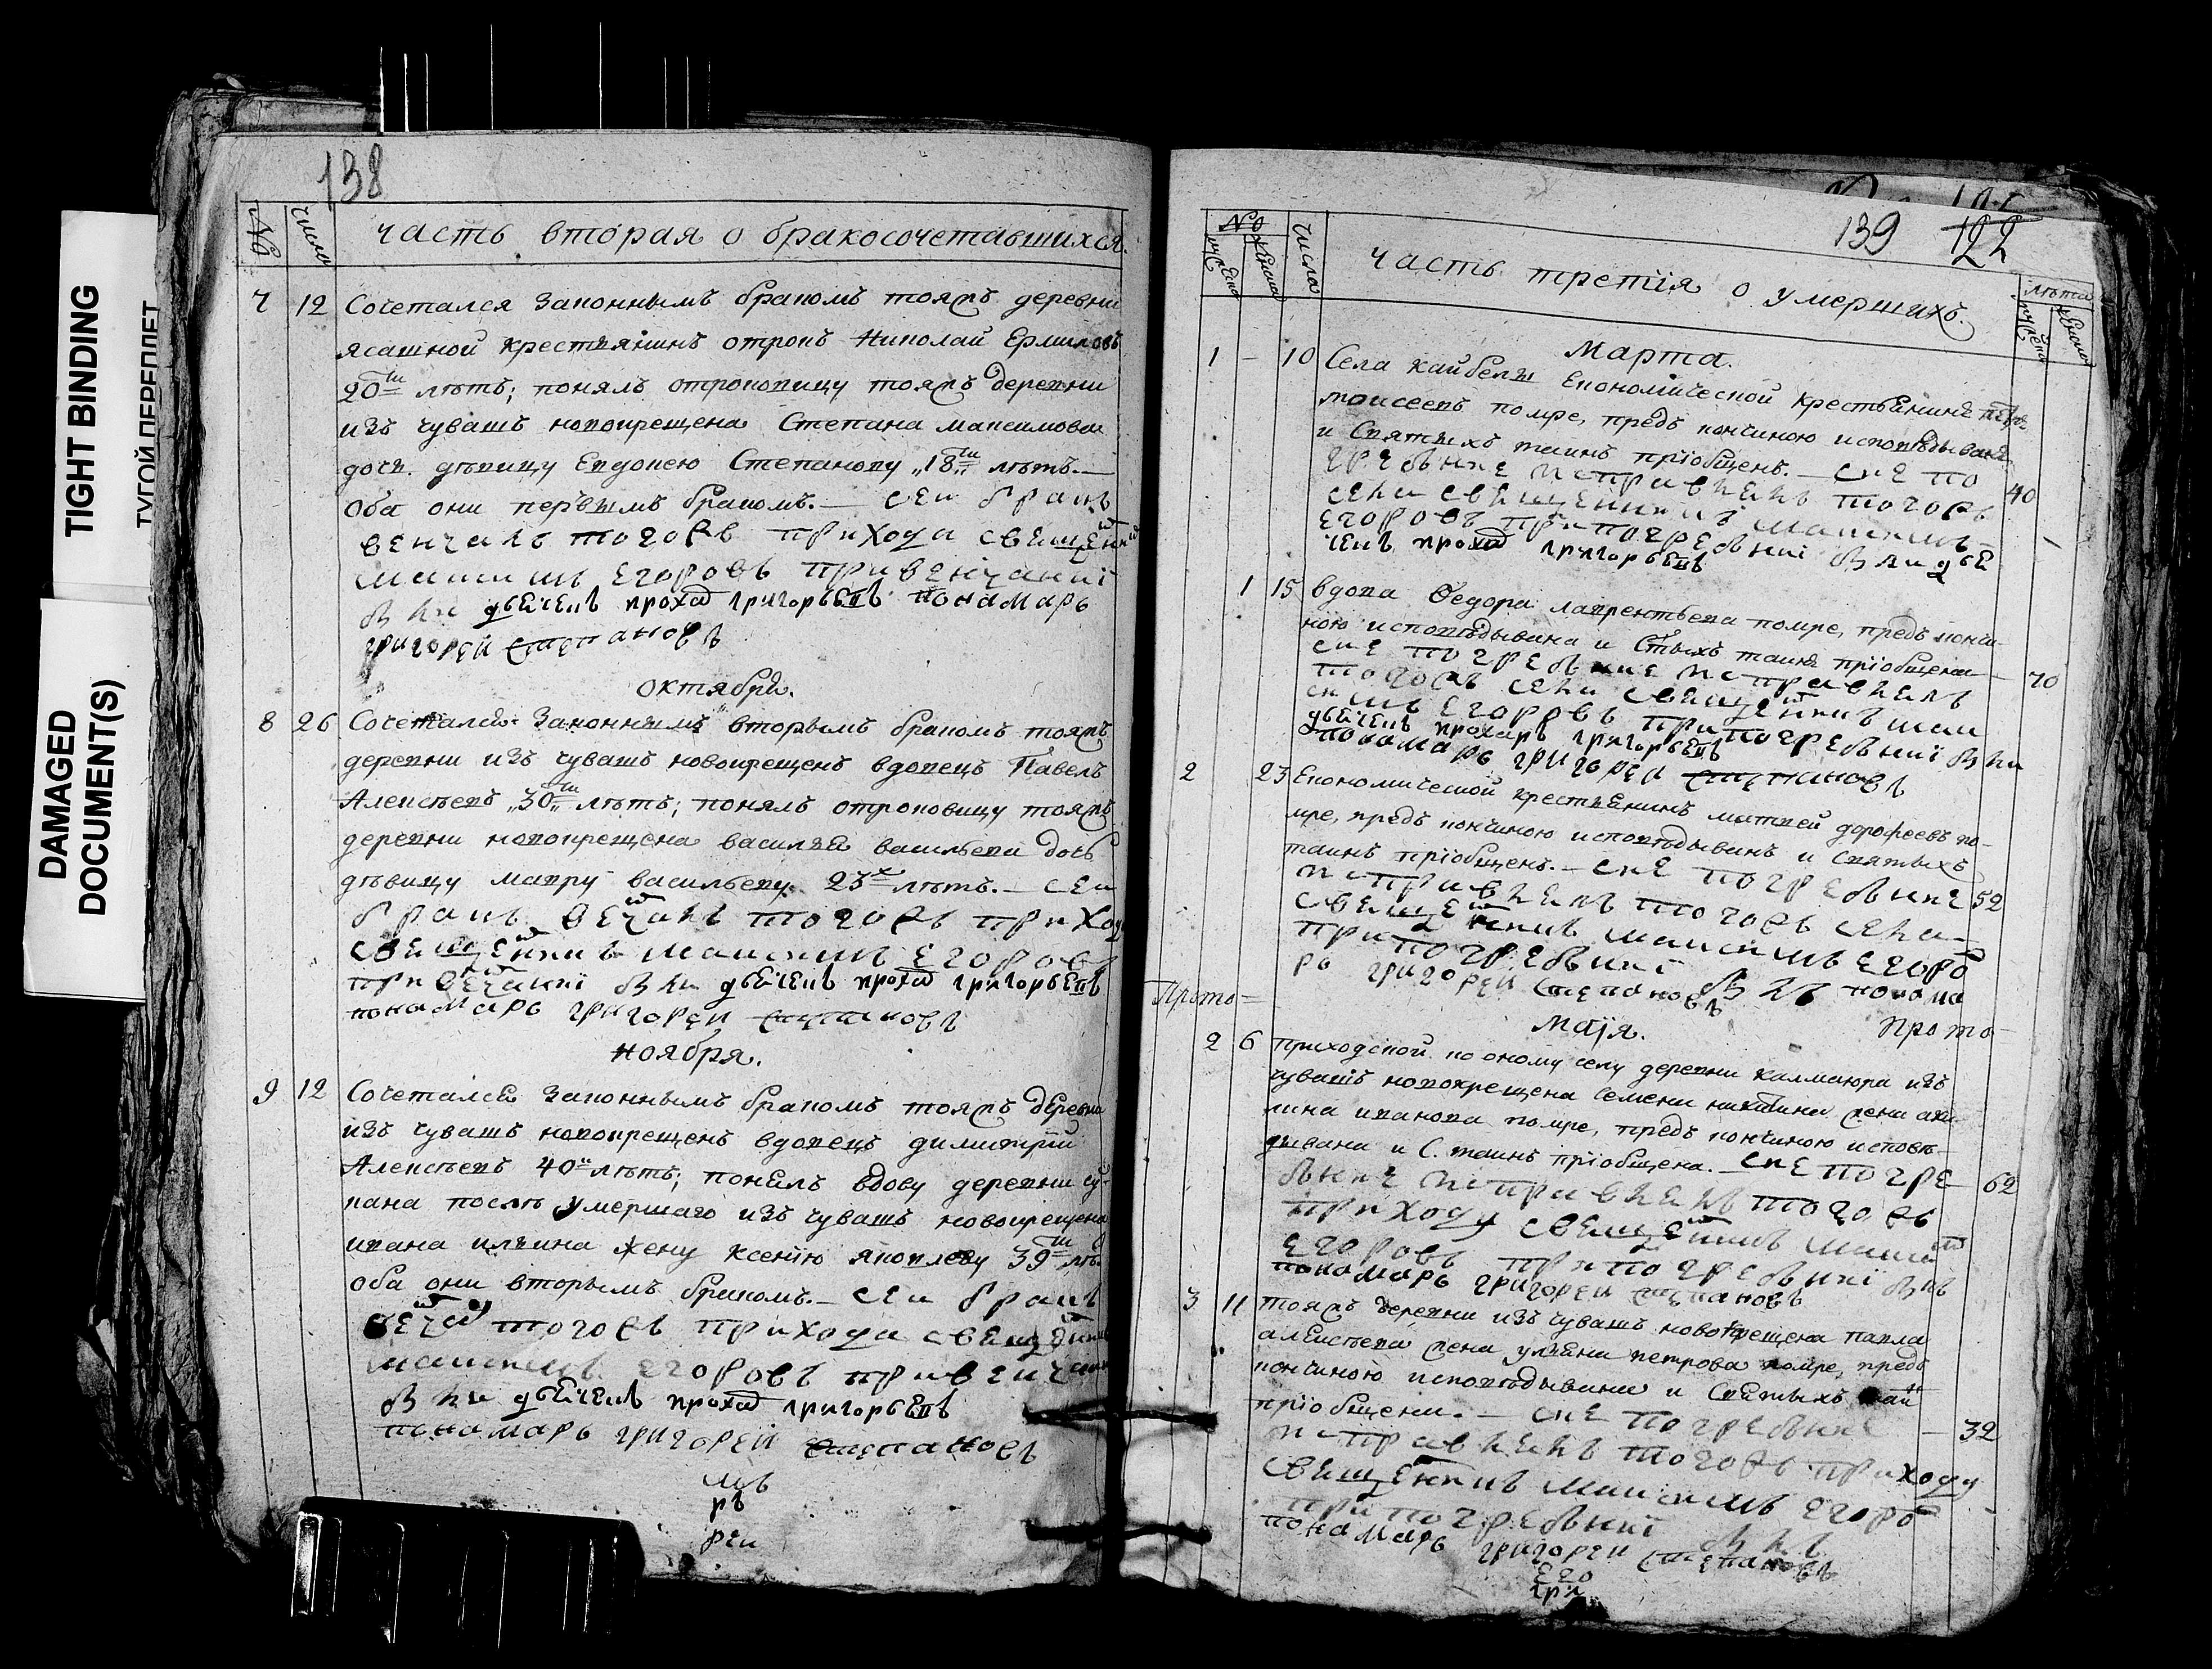 TIGHT BINDING
ТУГОЙ ПЕРЕПЛЕТ
DAMAGED
DOCUMENT(S)
138
№ число
часть вторая о бракосочетавшихся.
7 12 Сочетался законнымъ бракомъ тояжъ деревни
ясашной крестьянинъ отрокъ Николай Ермиловъ
20ти лѣтъ; понялъ отроковицу тояжъ деревни
изъ чувашъ новокрещена Степана максимова
дочь девицу Евдокею Степанову „18ти„ лѣтъ.—
оба они первымъ бракомъ.— сеи бракъ
венчалъ тогожъ прихода свещеникъ
максимъ егоровъ при венчаниї
былъ дьячекъ прохоръ григорьевъ понамарь
григореи степановъ
октября.
8 26 Сочетался законнымъ вторымъ бракомъ тояжъ
деревни изъ чувашъ новокрещенъ вдовецъ Павелъ
Алексѣевъ „30ти„ лѣтъ; понялъ отроковицу тояжъ
деревни новокрещена василья васильева дочь
дѣвицу мавру васильеву 23х лѣтъ.— сеи
бракъ венчалъ тогожъ приход
свещеникъ максимъ егоровъ
при венчаниї были дьячекъ прохоръ григорьевъ
понамарь григореи степановъ
ноября.
9 12 Сочетался законнымъ бракомъ тояжъ деревни
изъ чувашъ новокрещенъ вдовецъ димитрий
Алексѣевъ 40 лѣтъ; понялъ вдову деревни
послѣ умершаго изъ чувашъ новокрещена
ивана ильина жену ксенїю яковлеву 39ти лѣ.
оба они вторымъ бракомъ.— сеи бракъ
венчал тогожъ прихода свещеникъ
максимъ егоровъ при венчани
были дьячекъ прохоръ григорьевъ
понамарь григореи степановъ
мъ
ръ
реи
139 122
№ числа лѣта
мужеска женска
часть третїя о умершихъ.
Марта.
1 — 10 Села кайбелы Економической крестьянинъ петръ
моисеевъ помре, предъ кончиною исповѣдыванъ
и Святыхъ таинъ прїобщенъ.— сие по
гребение исправлялъ тогожъ 40
села свещенникъ максимъ
егоровъ при погребениї былъ дья
чекъ прохоръ григорьевъ
1 15 вдова Ѳедора лаврентьева помре, предъ кончи-
ною исповѣдывана и Стыхъ таинъ прїобщена
сие погребение исправлялъ — 70
тогожъ села свещеникъ мак
симъ егоровъ при погребениї были
дьячекъ прохоръ григорьевъ
понамарь григореи степановъ
2 23 Економической крестьянинъ матвей дорофеевъ по-
мре, предъ кончиною исповѣдыванъ и Святыхъ
таинъ прїобщенъ.— сие погребение
исправлялъ тогожъ села 52
свещеникъ максимъ егоро
при погребениї былъ понама
рь григореи степановъ
Прото=
маїя. Прото-
2 6 приходской по оному селу деревни калмаюра изъ
чувашъ новокрещена семена никитина жена аку
лина иванова помре, предъ кончиною исповѣ-
дывана и С. таинъ прїобщена.— сие погре
бение исправлялъ тогожъ — 62
приходу свещеникъ максим
егоровъ при погребениї былъ
понамарь григореи степановъ
3 11 тояжъ деревни изъ чувашъ новокрещена павла
алексѣева жена ульяна петрова помре, предъ
кончиною исповѣдывана и Святыхъ таинъ
прїобщена.— сие погребение
исправлялъ тогожъ приходу — 32
свещеникъ максимъ егоро
при погребениї былъ
понамарь григореи степановъ
его
гри